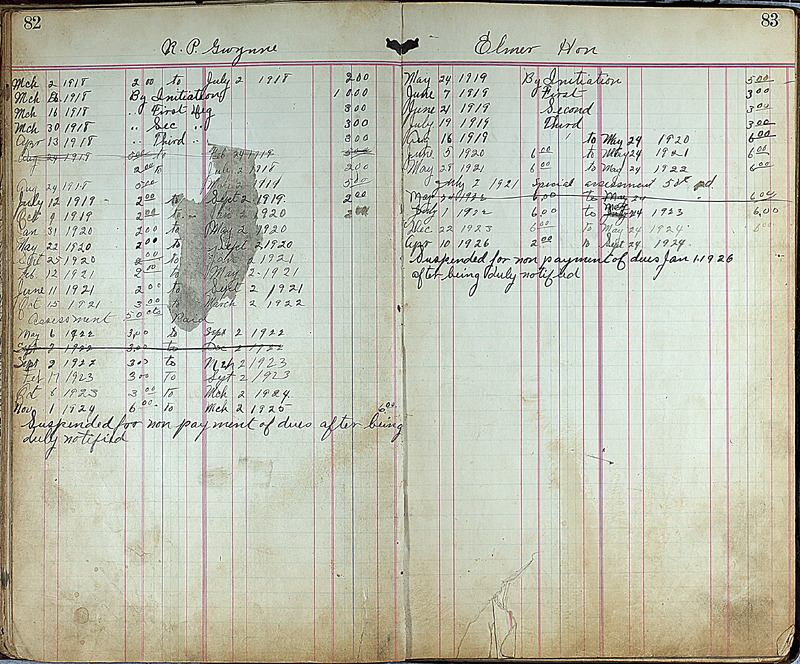 82
R. P. Gwynne
Mch 2 1918 2 00 to July 2 1918 2 00
Mch 1918 By Initiation 10 00
Mch 16 1918 " First Deg 3 00
Mch 30 1918 " Sec " 3 00
Apr 13 1918 " Third " 3 00
Aug 24 1919 5 00 to Feb 24 1919 5 00
2 00 to July 2 1918 2 00
Aug 24 1918 5 00 1911 5 00
July 12 1919 2 00 to Sept 2 1919 2 00
Oct 9 1919 2 00 to Jan 2 1920 2 00
Jan 31 1920 2 00 to May 2 1920
May 22 1920 2 00 to Sept 2 1920
Sept 25 1920 2 00 to Jan 2 1921
Feb 12 1921 2 00 to May 2 1921
June 11 1921 2 00 to Sept 2 1921
Oct 15 1921 3 00 to March 2 1922
Assessment 50 cts Paid
May 6 1922 3 00 to Sept 2 1922
Sept 2 1922 3 00 to Dec 2 1922
Sept 2 1922 3 00 to Mch 2 1923
Feb 17 1923 3 00 To Sept 2 1923
Oct 6 1923 3 00 To Mch 2 1924
Nov 1 1924 6 00 To Mch 2 1925 6 00
Suspended for non payment of dues after being
duly notified
83
Elmer Hon
May 24 1919 By Initiation 5 00
June 7 1919 First 3 00
June 21 1919 Second 3 00
July 19 1919 Third 3 00
Aug 16 1919 to May 24 1920 6 00
June 5 1920 6 00 to May 24 1921 6 00
May 28 1921 6 00 to May 24 1922 6 00
July 2 1921 special assessment 50¢ pd
May 1922 6 00 to May 24 6 00
July 1 1922 6 00 to May 24 1923 6 00
Dec 22 1923 6 00 to May 24 1924 6 00
Apr 10 1926 2 00 to Sept 24 1924
Suspended for non payment of dues Jan 1 1926
after being duly notified